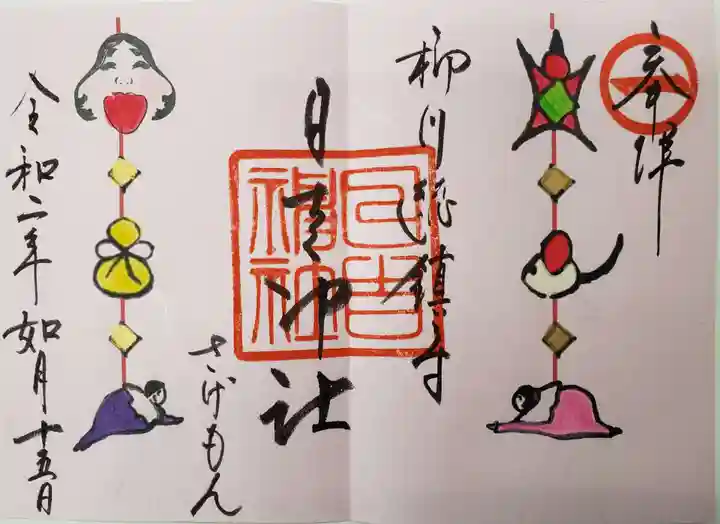 奉拝
柳川総鎮守
日吉神社
日吉神社
さげもん
令和二年如月十五日